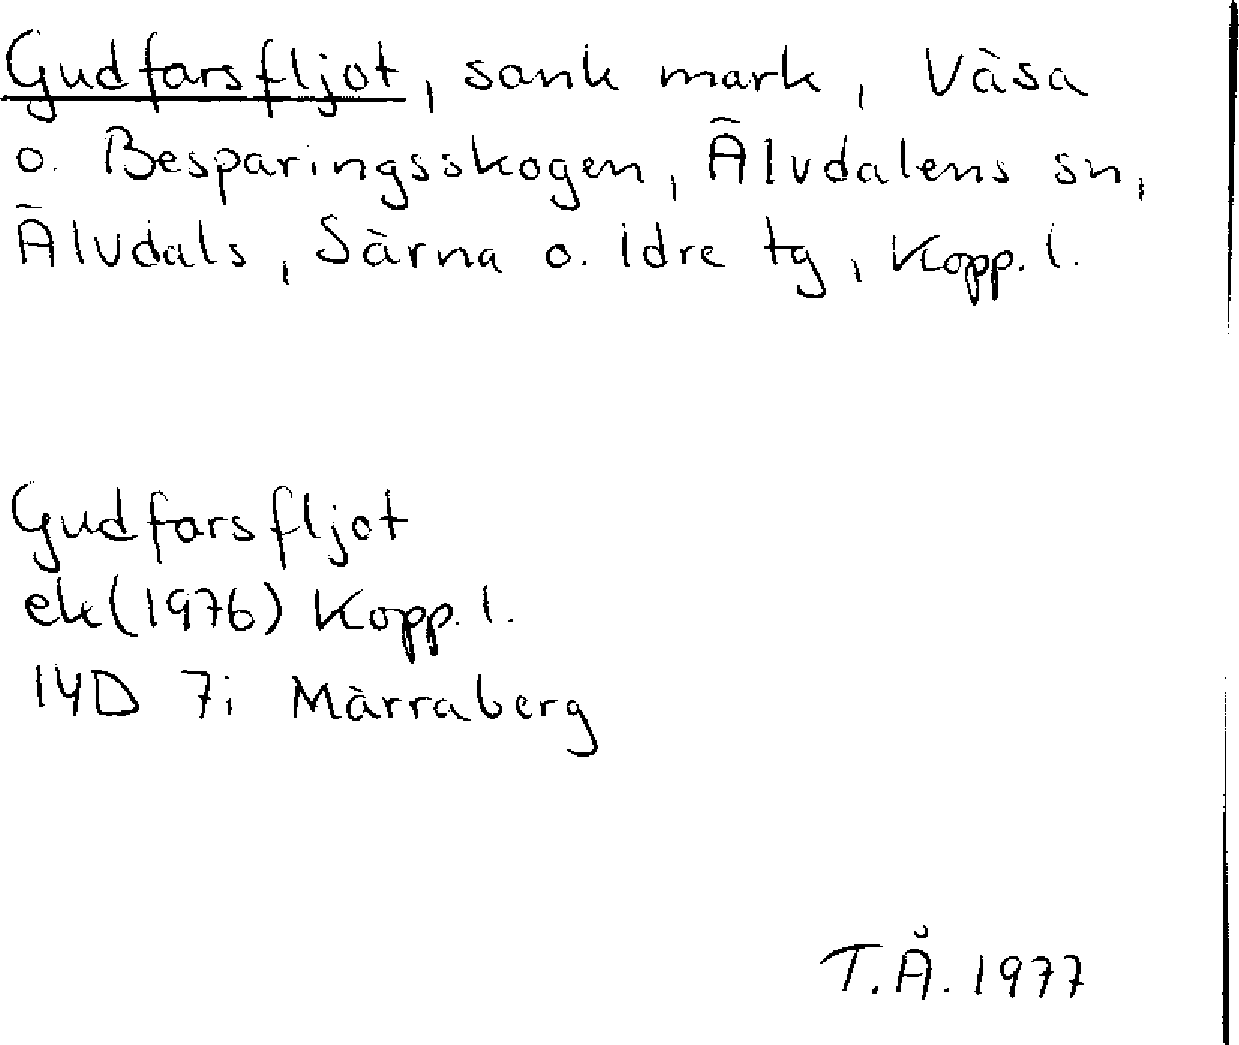 Gudfarsfljot, sank mark, Väsa
o. Besparingsskogen, Älvdalens sn,
Älvdals, Särna o. Idre tg, Kopp. l.
Gudfarsfljot
ek(1976) Kopp. l.
14D 7i Märraberg
T.Å. 1977